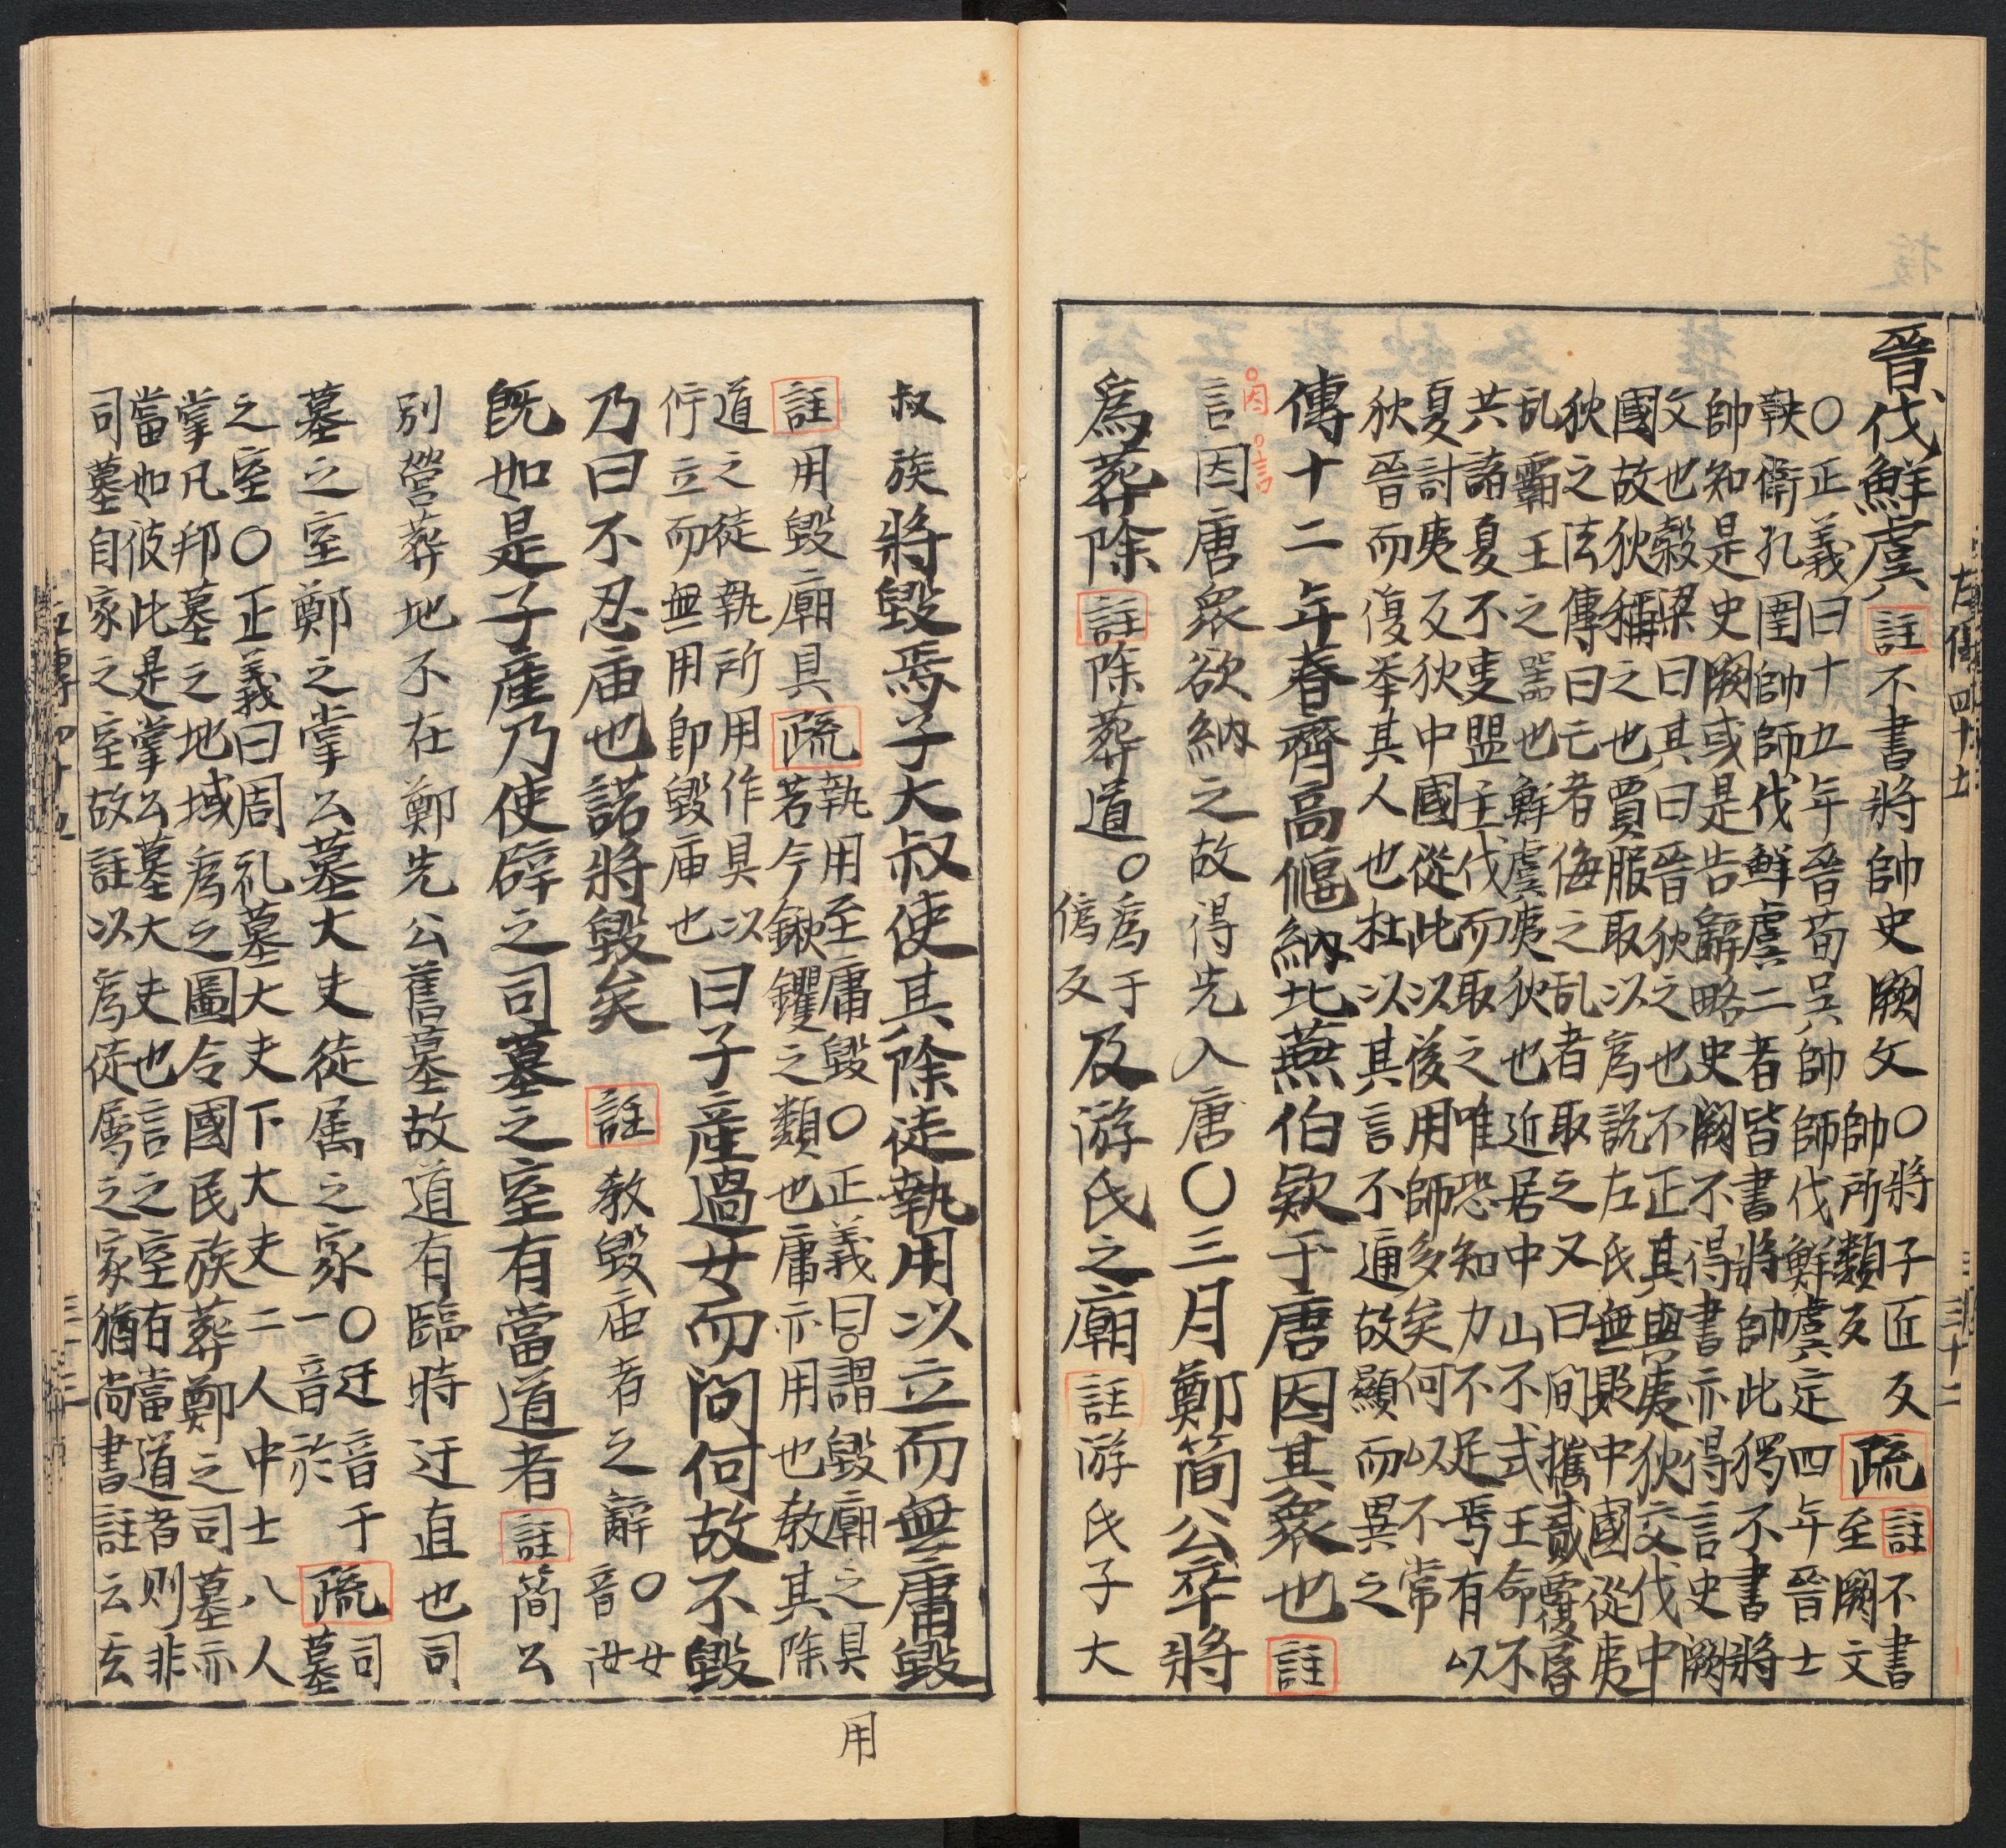 晉伐鮮虞註不書將帥史闕文〇將子匠反帥所類反疏註不書至闕文
〇正義曰十五年晉荀吳帥師伐鮮虞定四年晉士
鞅衛孔圉帥師伐鮮虞二者皆書將帥此獨不書將
帥知是史闕或是告辭略史闕不得書亦得言史闕
文也穀梁曰其曰晉狄之也不正其與夷狄交伐中
國故狄稱之也賈服取以爲説左氏無貶中國從夷
狄之法傳曰亢者侮之乱者取之又曰間攜貳覆昏
乱霸王之噐也鮮虞夷狄也近居中山不式王命不
共諸夏不隻盟主伐而取之唯恐知力不足焉有以
夏討夷反狄中國從此以後用師多矣何以不常
狄晉而復举其人也杜以其言不通故顯而異之
傳十二年春齊高偃納北燕伯欵于唐因其衆也註
因 言
言因唐衆欲納之故得先入唐〇三月鄭簡公卒將
爲葬除註除葬道〇爲于僞反及游氏之廟註游氏子大
叔族將毀焉子大叔使其除徒執用以立而無庸毀
註用毀廟具疏執用至庸毀〇正義曰謂毀廟之具
若今鍬钁之類也庸亦用也教其除
道之徒執所用作具以
佇立而無用即毀庙也曰子產過女而問何故不毀
乃曰不忍庙也諾將毀矣註教毀庙者之辭〇女音汝
既如是子產乃使辟之司墓之室有當道者註簡公
別營葬地不在鄭先公舊墓故道有臨時迂直也司
墓之室鄭之掌公墓大夫徒属之家〇迂音于一音於疏司墓
之室〇正義曰周礼墓大夫下大夫二人中士八人
掌凡邦墓之地域爲之圖令國民族葬鄭之司墓亦
當如彼此是掌公墓大夫也言之室有當道者則非
司墓自家之室故註以爲徒属之家猶尚書註云玄
用